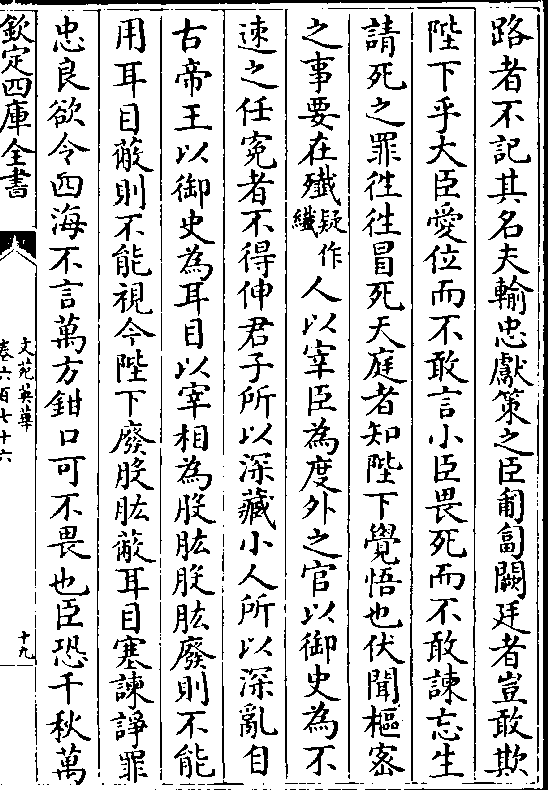 路者不記其名夫輸忠獻策之臣匍匐闕廷者豈敢欺
陛下乎大臣愛位而不敢言小臣畏死而不敢諫忘生
請死之罪徃徃冒死天庭者知陛下覺悟也伏聞樞宻
之事要在殲疑作纎人以宰臣為度外之官以御史為不
速之任寃者不得伸君子所以深藏小人所以深亂自
古帝王以御史為耳目以宰相為股肱股肱廢則不能
用耳目蔽則不能視今陛下廢股肱蔽耳目塞諫諍罪
忠良欲令四海不言萬方鉗口可不畏也臣恐千秋萬
欽定四庫全書
文苑英華
卷六百七十六
十九